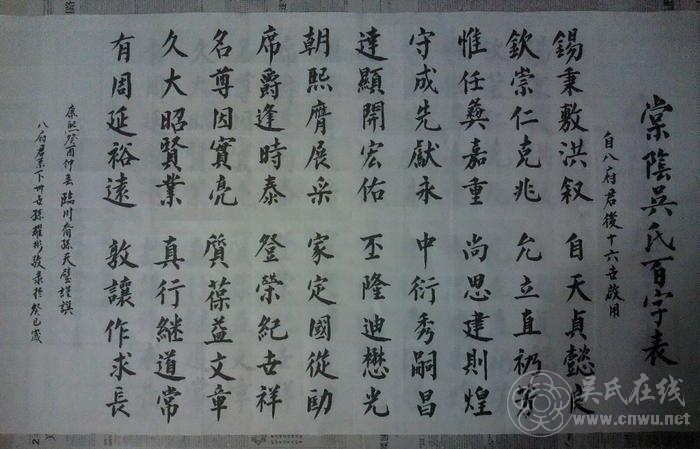 棠陰吳氏百字表
自八府君後十六世啟用
錫秉敷洪叙 自天貞懿
欽崇仁克兆 允立直礽
惟任彝嘉重 尚思建則煌
守成先猷永 中衍秀嗣昌
達顯開宏佑 丕隆迪懋光
朝熙膺展采 家定國從勖
席爵逢時泰 登榮紀世祥
名尊因實亮 質葆益文章
久大昭賢業 真行繼道常
有周延裕遠 敦讓作求長
康熙癸酉仲 臨川裔孫天 謹撰
八府君 下卅世孫耀彬敬 於癸巳歲
吴氏在线
www.cnwu.net